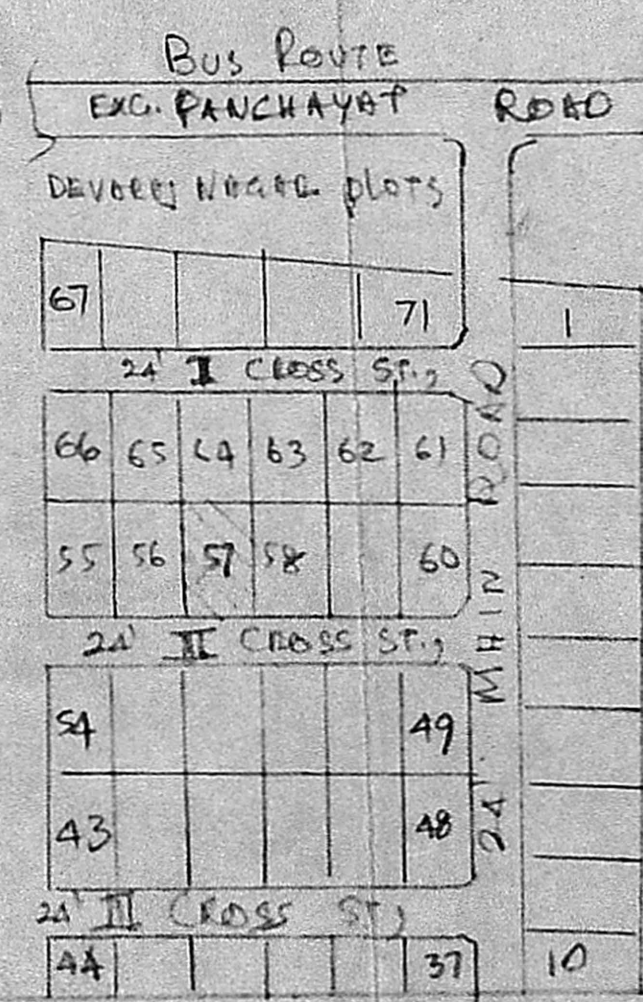 BUS ROUTE
EXG. PANCHAYAT ROAD
DEVARAJ NAGAR plots
67 71 1
24' I CROSS ST.,
66 65 64 63 62 61
55 56 57 58 60
24' II CROSS ST.,
54 49
43 48
24' MAIN ROAD
24' III CROSS ST,
44 37 10